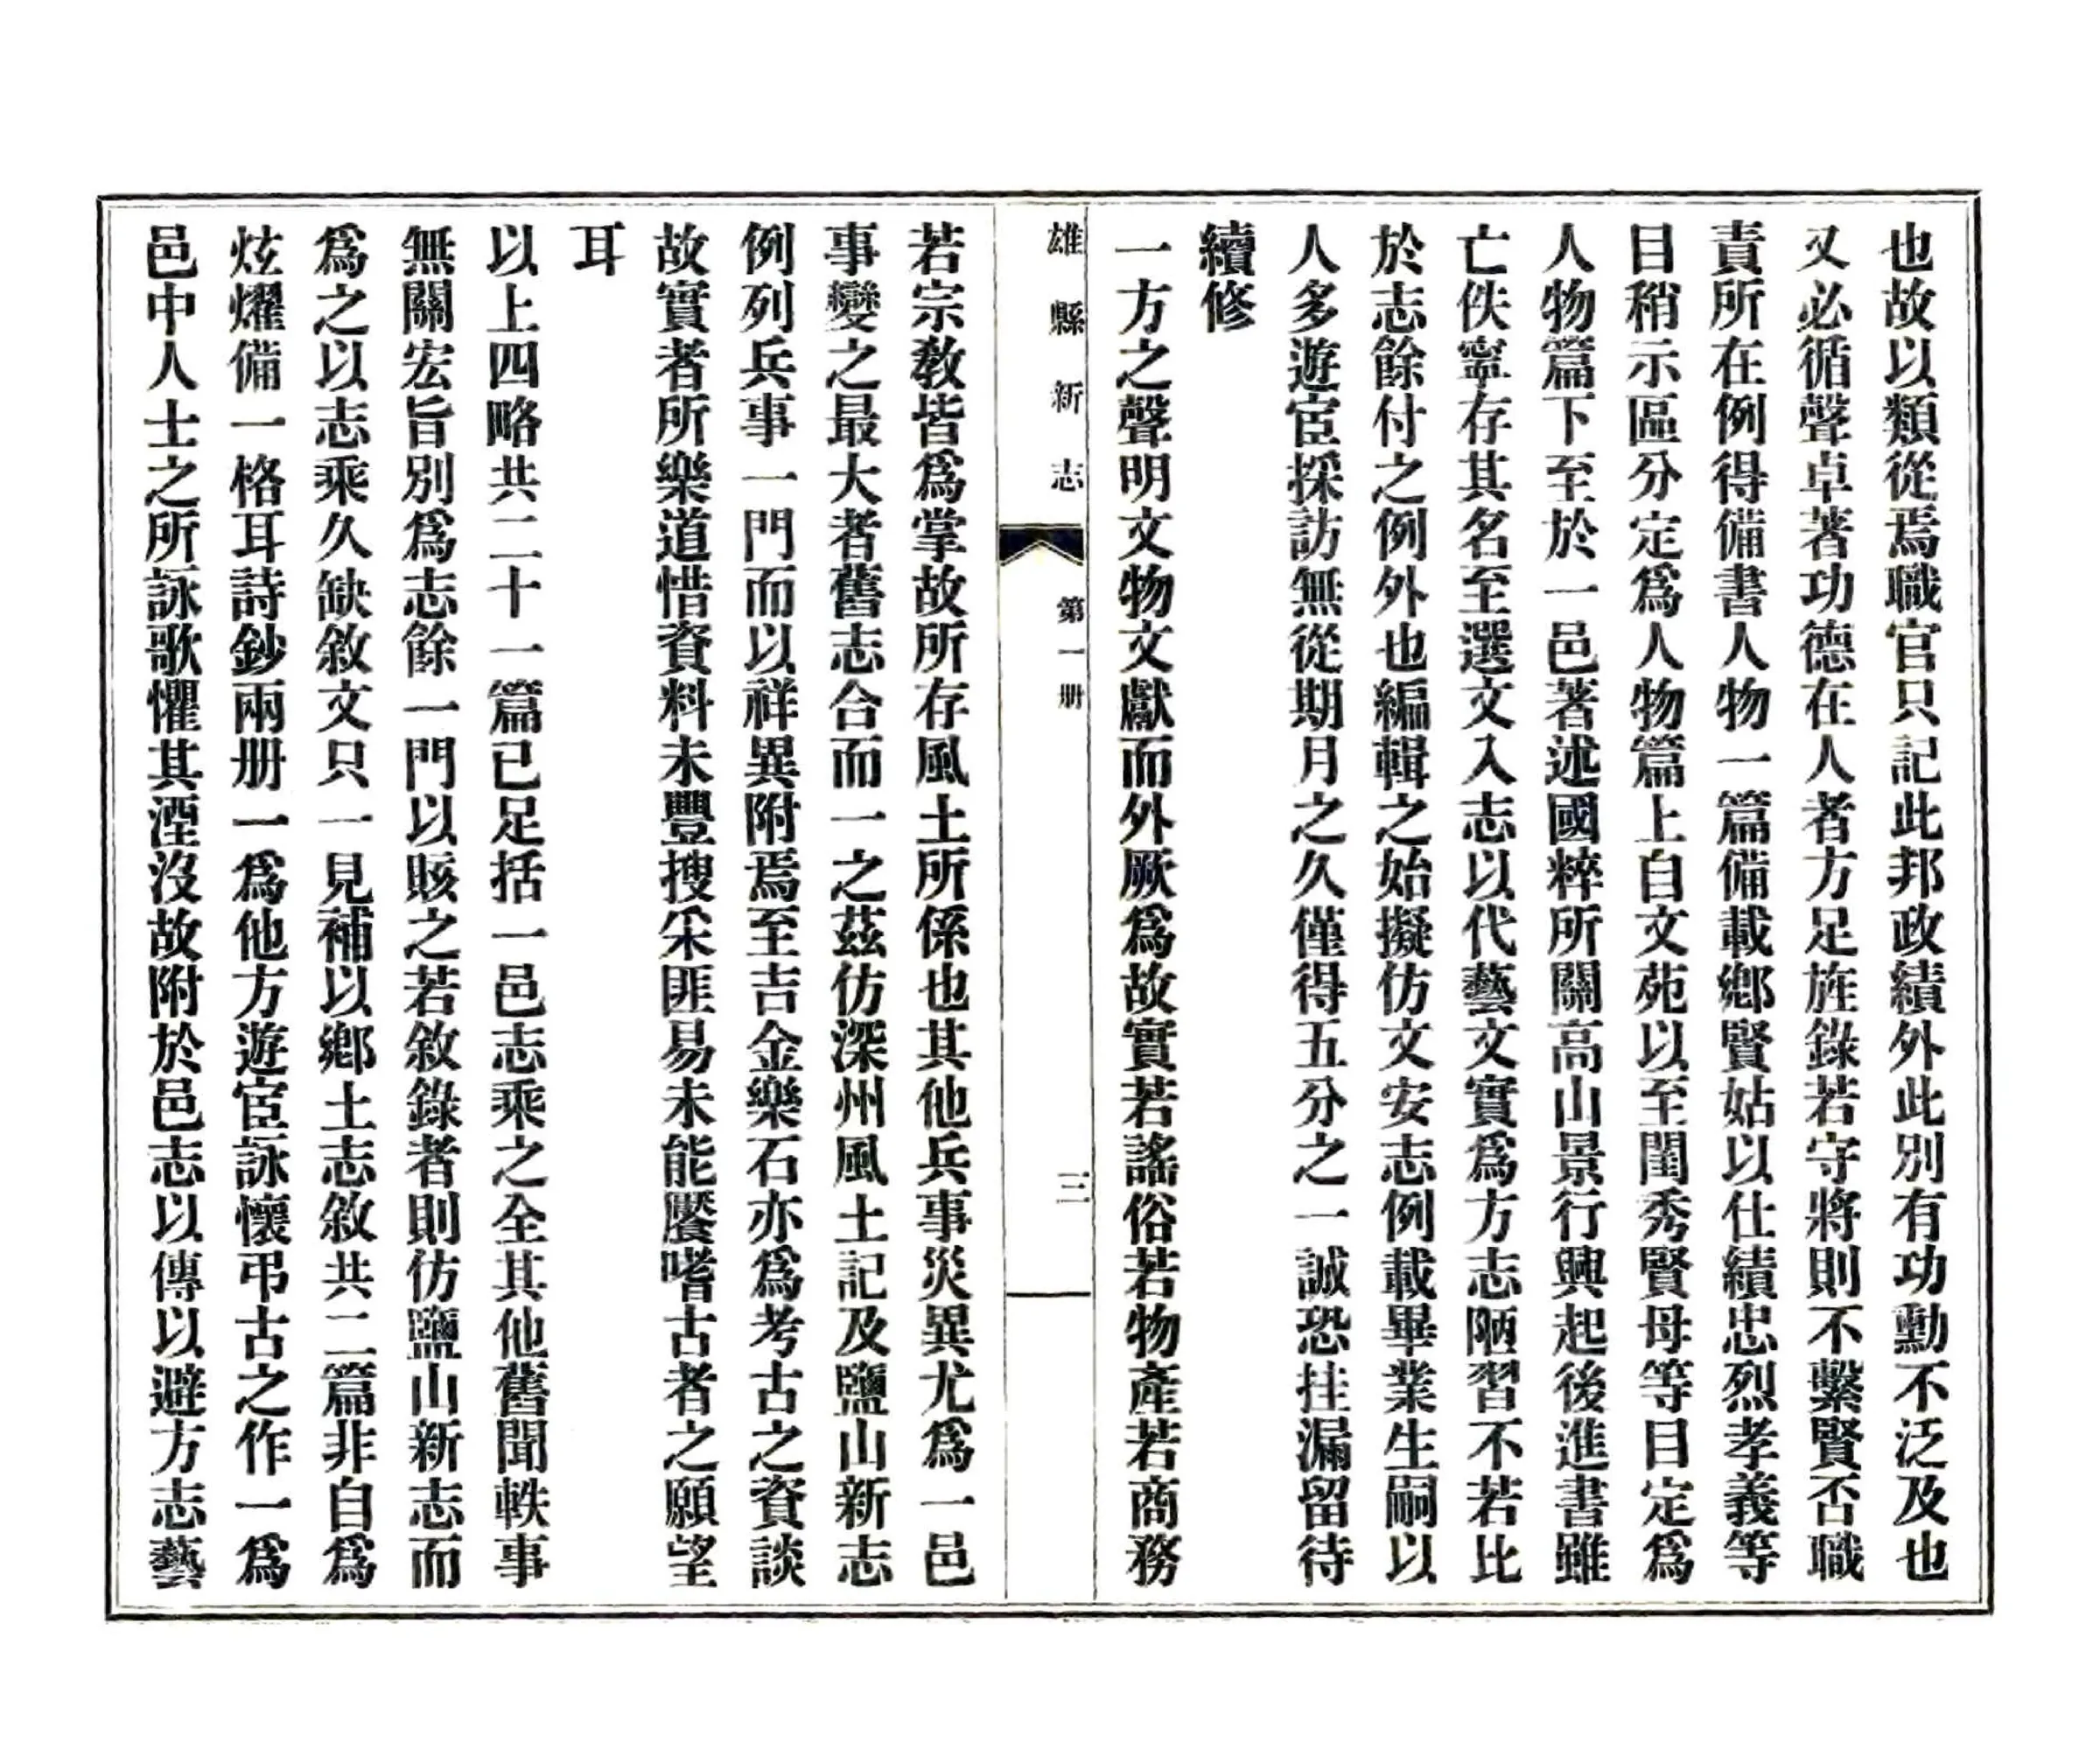 也故以類從焉職官只記此邦政績外此別有功勳不泛及也
又必循聲卓著功德在人者方足旌錄若守將則不繫賢否職
責所在例得備書人物一篇備載鄉賢姑以仕績忠烈孝義等
目稍示區分定爲人物篇上自文苑以至閨秀賢母等目定爲
人物篇下至於一邑著述國粹所關高山景行興起後進書雖
亡佚寧存其名至選文入志以代藝文實爲方志陋習不若比
於志餘付之例外也編輯之始擬仿文安志例載畢業生嗣以
人多遊宦採訪無從期月之久僅得五分之一誠恐挂漏留待
續修
一方之聲明文物文獻而外厥爲故實若謠俗若物產若商務
雄縣新志 第一册 三
若宗教皆爲掌故所存風土所係也其他兵事災異尤爲一邑
事變之最大者舊志合而一之茲仿深州風土記及鹽山新志
例列兵事一門而以祥異附焉至吉金樂石亦爲考古之資談
故實者所樂道惜資料未豐搜采匪易未能饜嗜古者之願望
耳
以上四略共二十一篇已足括一邑志乘之全其他舊聞軼事
無關宏旨別爲志餘一門以賅之若敘錄者則仿鹽山新志而
爲之以志乘久缺敘文只一見補以鄉土志敘共二篇非自爲
炫燿備一格耳詩鈔兩册一爲他方遊宦詠懷弔古之作一爲
邑中人士之所詠歌懼其湮沒故附於邑志以傳以避方志藝